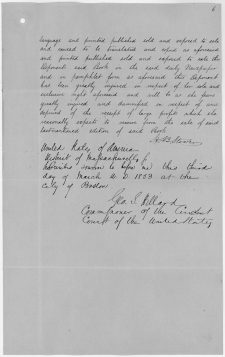 6
language and printed published sold and exposed to sale
and caused to be translated and copied as aforesaid
and printed published sold and exposed to sale the
deponents said Book in the said daily Newspaper
and in pamphlet form as aforesaid this deponent
has been greatly injured in respect of her sole and
exclusive right aforesaid and will be as she fears
greatly injured and damnified in respect of and
deprived of the receipt of large profits which she
reasonably expects to receive from the sale of said
last mentioned edition of said Book
H. B. Stowe
United States of America
District of Massachusetts
Subscribed sworn to before me this third
day of March A D 1853 at the
City of Boston
Geo. S. Hillard
Commissioner of the Circuit
Court of the United States